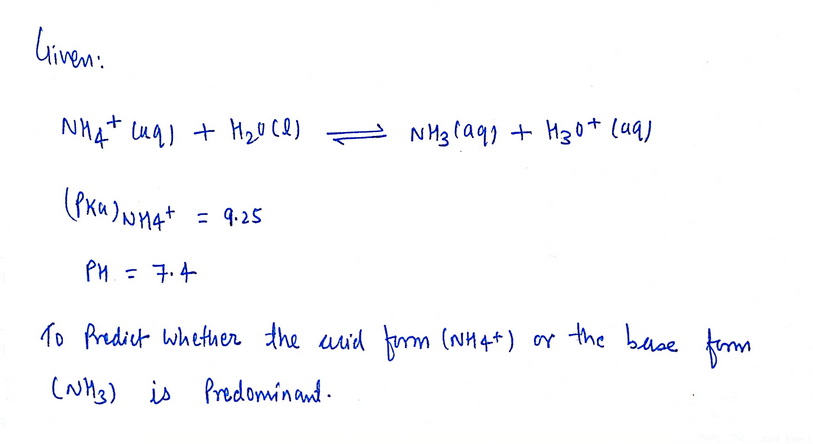 Given:
NH4+ (aq) + H2O(l) ⇌ NH3(aq) + H3O+ (aq)
(PKa)NH4+ = 9.25
PH = 7.4
To Predict whether the acid form (NH4+) or the base form
(NH3) is Predominant.